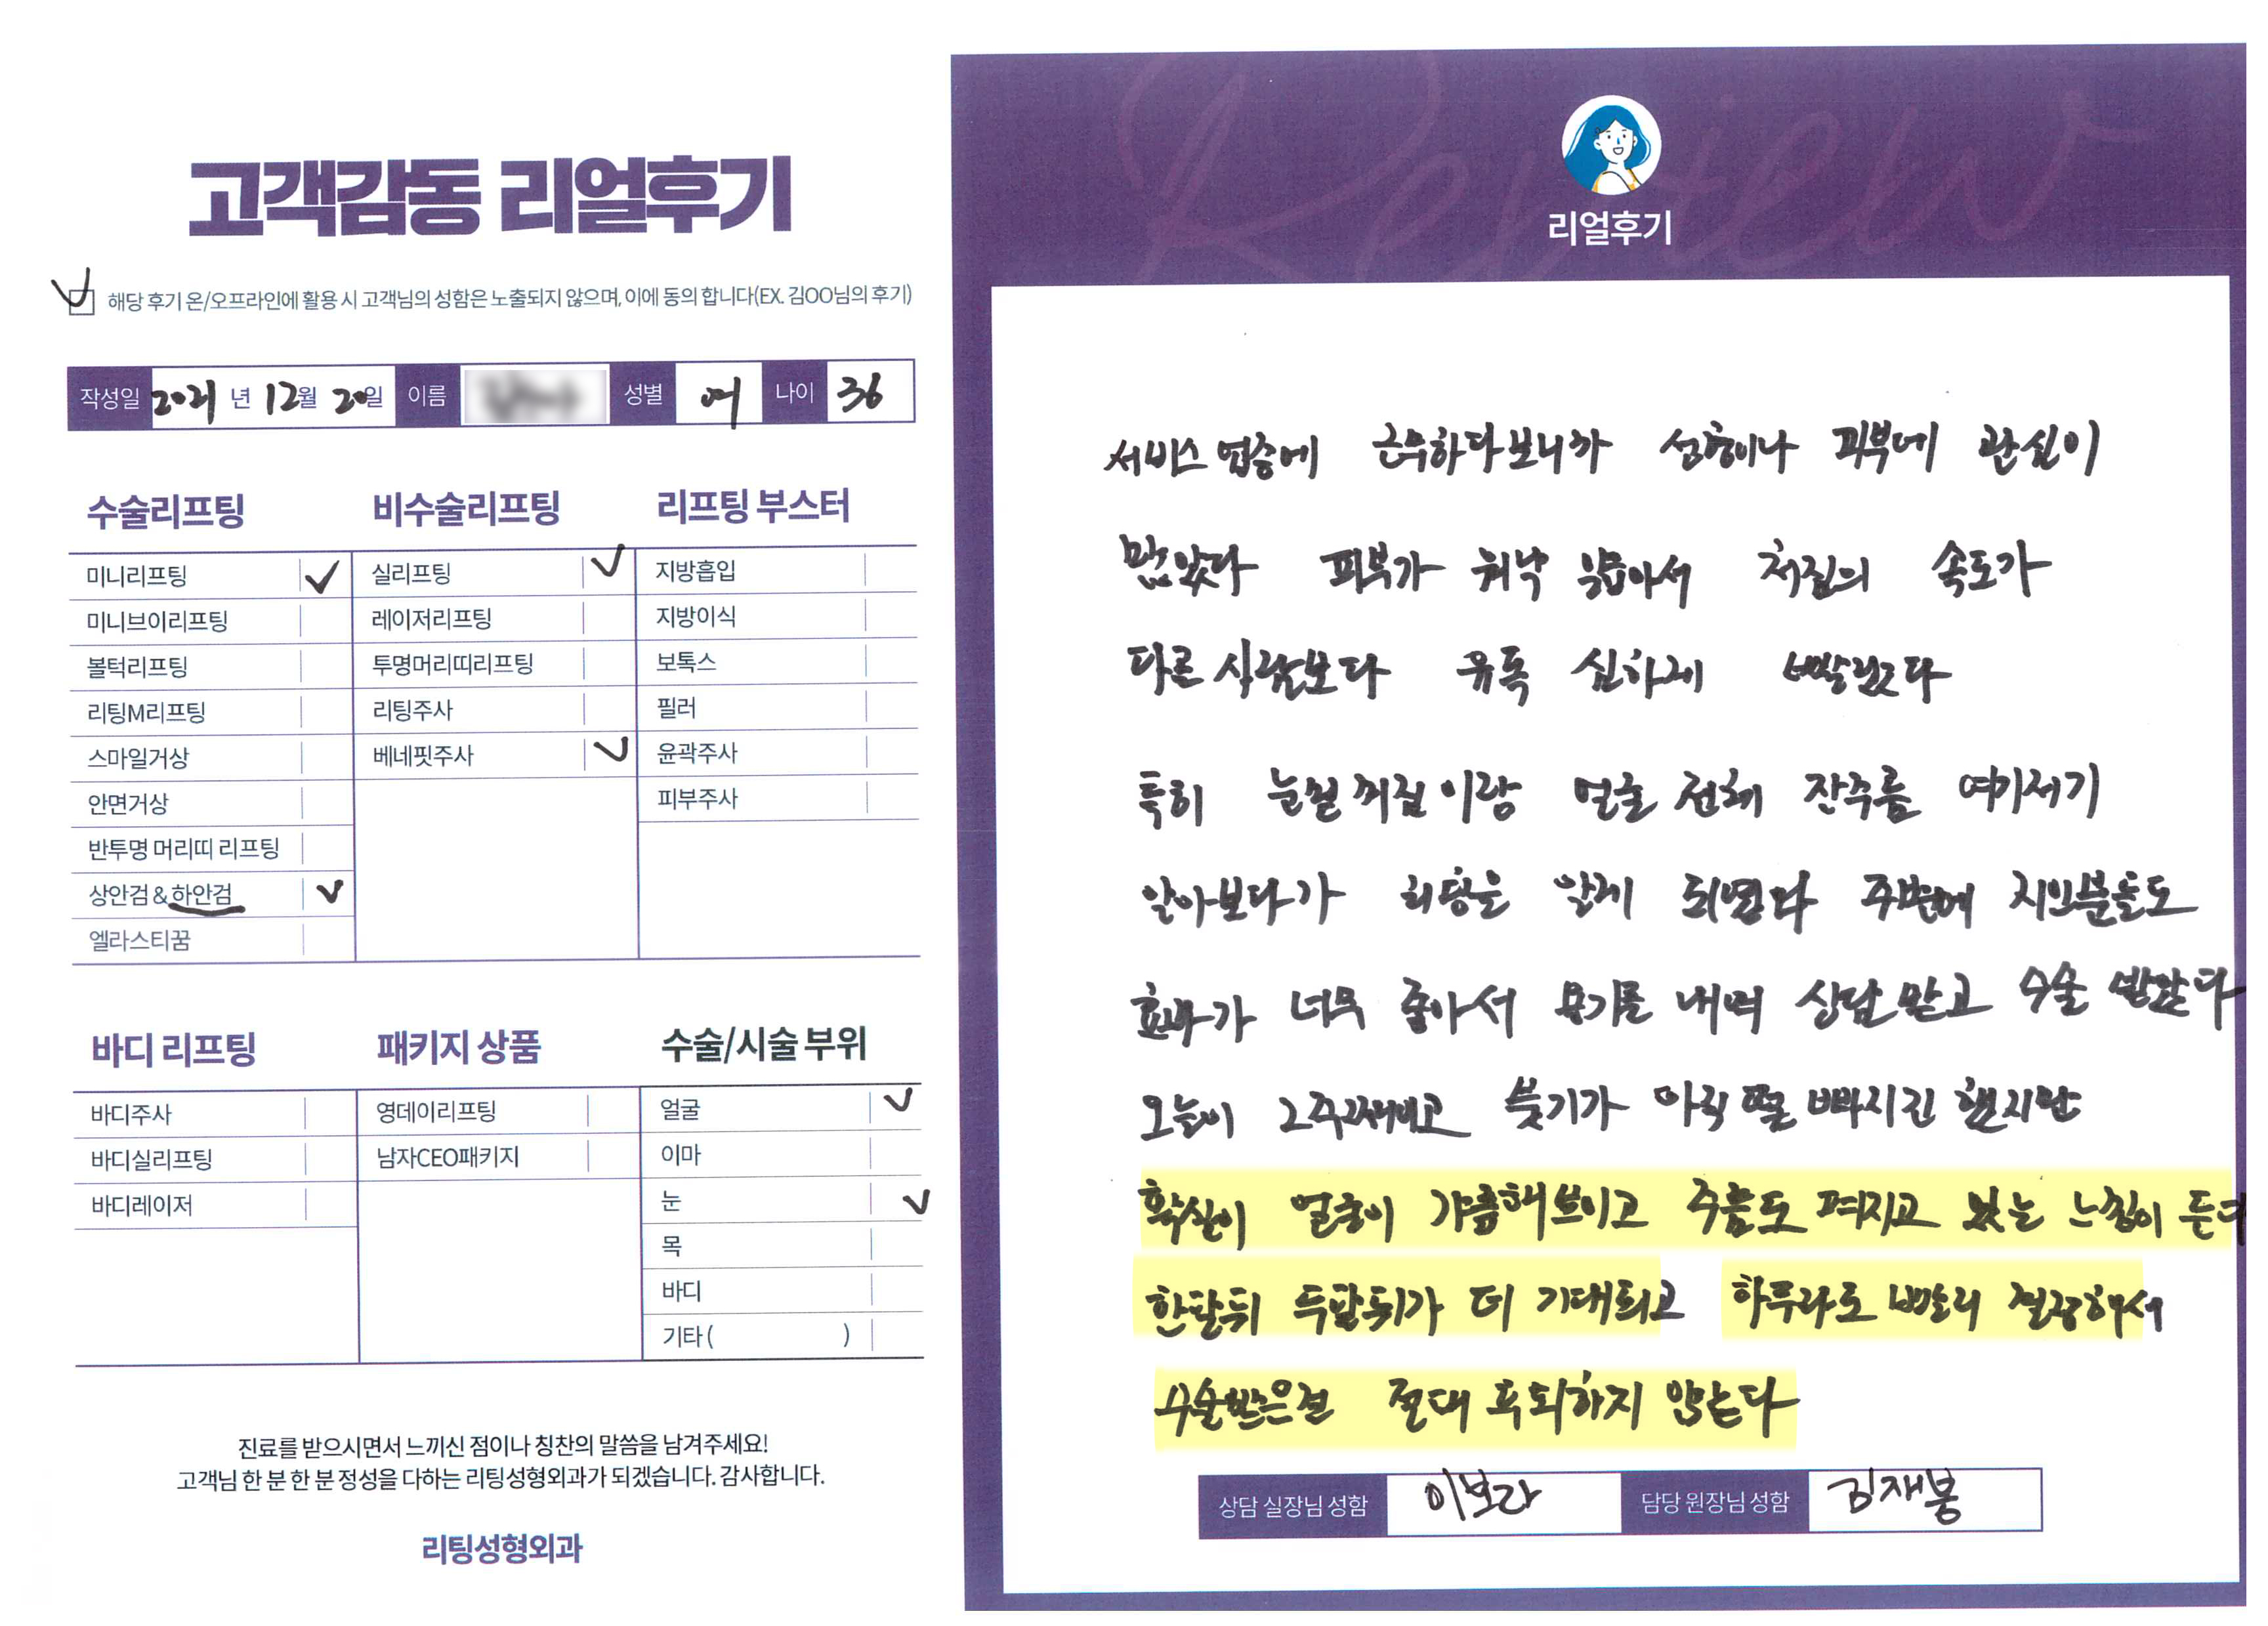 고객감동 리얼후기
해당 후기 온/오프라인에 활용 시 고객님의 성함은 노출되지 않으며, 이에 동의 합니다(EX. 김OO님의 후기)
작성일 2021 년 12월 20일 이름 성별 여 나이 36
수술리프팅
미니리프팅
미니브이리프팅
볼턱리프팅
리팅M리프팅
스마일거상
안면거상
반투명 머리띠 리프팅
상안검 & 하안검
엘라스티꿈
비수술리프팅
실리프팅
레이저리프팅
투명머리띠리프팅
리팅주사
베네핏주사
리프팅 부스터
지방흡입
지방이식
보톡스
필러
윤곽주사
피부주사
바디 리프팅
바디주사
바디실리프팅
바디레이저
패키지 상품
영데이리프팅
남자CEO패키지
수술/시술 부위
얼굴
이마
눈
목
바디
기타 ( )
진료를 받으시면서 느끼신 점이나 칭찬의 말씀을 남겨주세요!
고객님 한 분 한 분 정성을 다하는 리팅성형외과가 되겠습니다. 감사합니다.
리팅성형외과
Review
리얼후기
서비스 업종에 근무하다보니까 성형이나 피부에 관심이
많았다 피부가 워낙 얇아서 처짐의 속도가
다른 사람보다 유독 심하게 빨랐다
특히 눈밑 꺼짐이랑 얼굴 전체 잔주름 여기저기
알아보다가 리팅을 알게 되었다 주변에 지인분들도
효과가 너무 좋아서 용기를 내어 상담 받고 수술 받았다
오늘이 2주째이고 붓기가 아직 덜 빠지긴 했지만
확실이 얼굴이 갸름해보이고 주름도 펴지고 있는 느낌이 든다
한달뒤 두달뒤가 더 기대되고 하루라도 빨리 결정해서
수술받은걸 절대 후회하지 않는다
상담 실장님 성함 이보라 담당 원장님 성함 김재봉